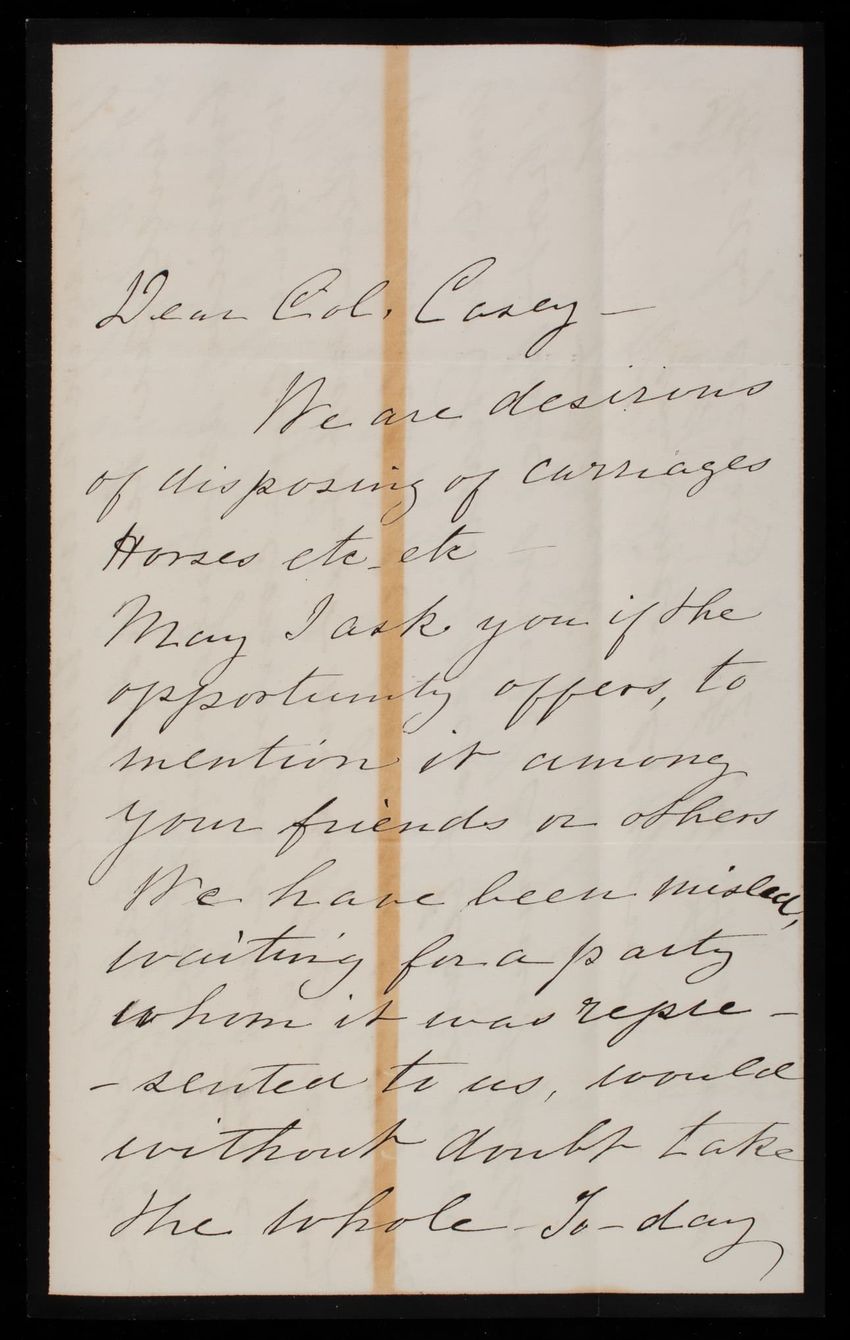 Dear Col. Casey -
We are desirous
of disposing of carriages
Horses etc - etc -
May I ask you if the
opportunity offers, to
mention it among
your friends or others
We have been misled,
waiting for a party
whom it was repre -
- sented to us, would
without doubt take
the whole - To-day